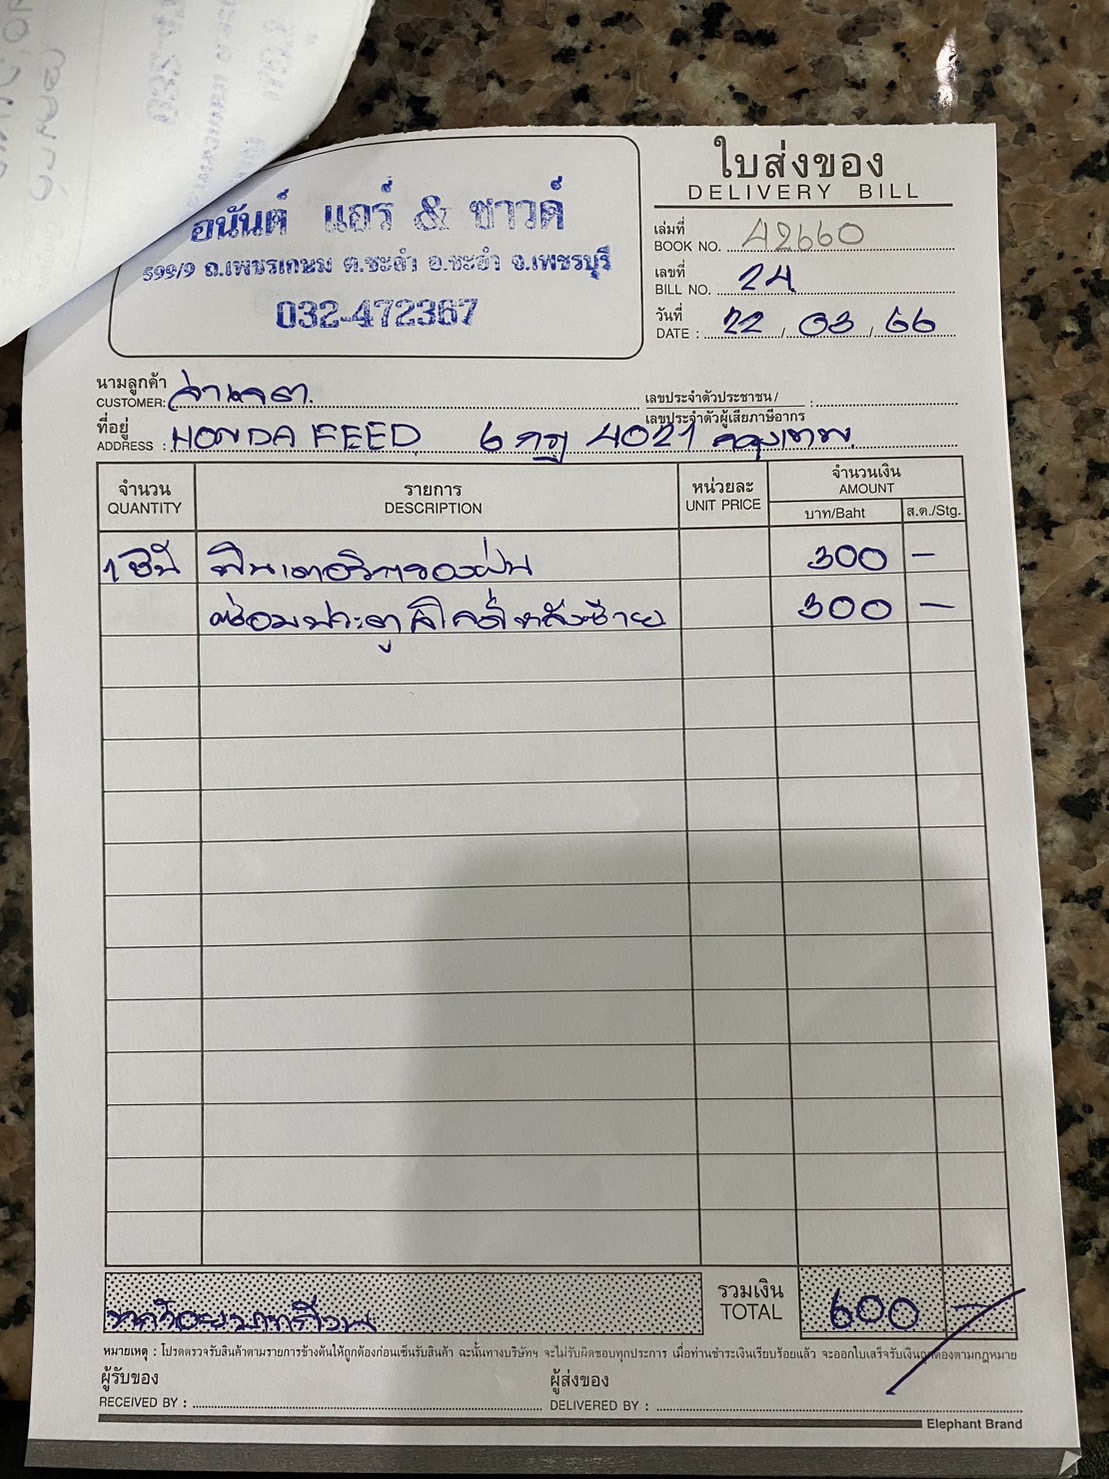 ใบส่งของ
DELIVERY BILL
อนันต์ แอร์ & ซาวด์
599/9 ถ.เพชรเกษม ต.ชะอำ อ.ชะอำ จ.เพชรบุรี
032-472367
เล่มที่
BOOK NO. 42660
เลขที่
BILL NO. 24
วันที่
DATE : 22 / 03 / 66
นามลูกค้า
CUSTOMER:
เลขประจำตัวประชาชน /
เลขประจำตัวผู้เสียภาษีอากร :
ที่อยู่
ADDRESS : HONDA FEED 6 กฎ 4021 กรุงเทพ
จำนวน
QUANTITY
รายการ
DESCRIPTION
หน่วยละ
UNIT PRICE
จำนวนเงิน
AMOUNT
บาท/Baht
ส.ต./Stg.
1 300 -
ซ่อมประตู หลังซ้าย 300 -
รวมเงิน
TOTAL 600 -
หกร้อยบาทถ้วน
หมายเหตุ : โปรดตรวจรับสินค้าตามรายการข้างต้นให้ถูกต้องก่อนเซ็นรับสินค้า ฉะนั้นทางบริษัทฯ จะไม่รับผิดชอบทุกประการ เมื่อท่านชำระเงินเรียบร้อยแล้ว จะออกใบเสร็จรับเงินถูกต้องตามกฎหมาย
ผู้รับของ
RECEIVED BY :
ผู้ส่งของ
DELIVERED BY :
Elephant Brand